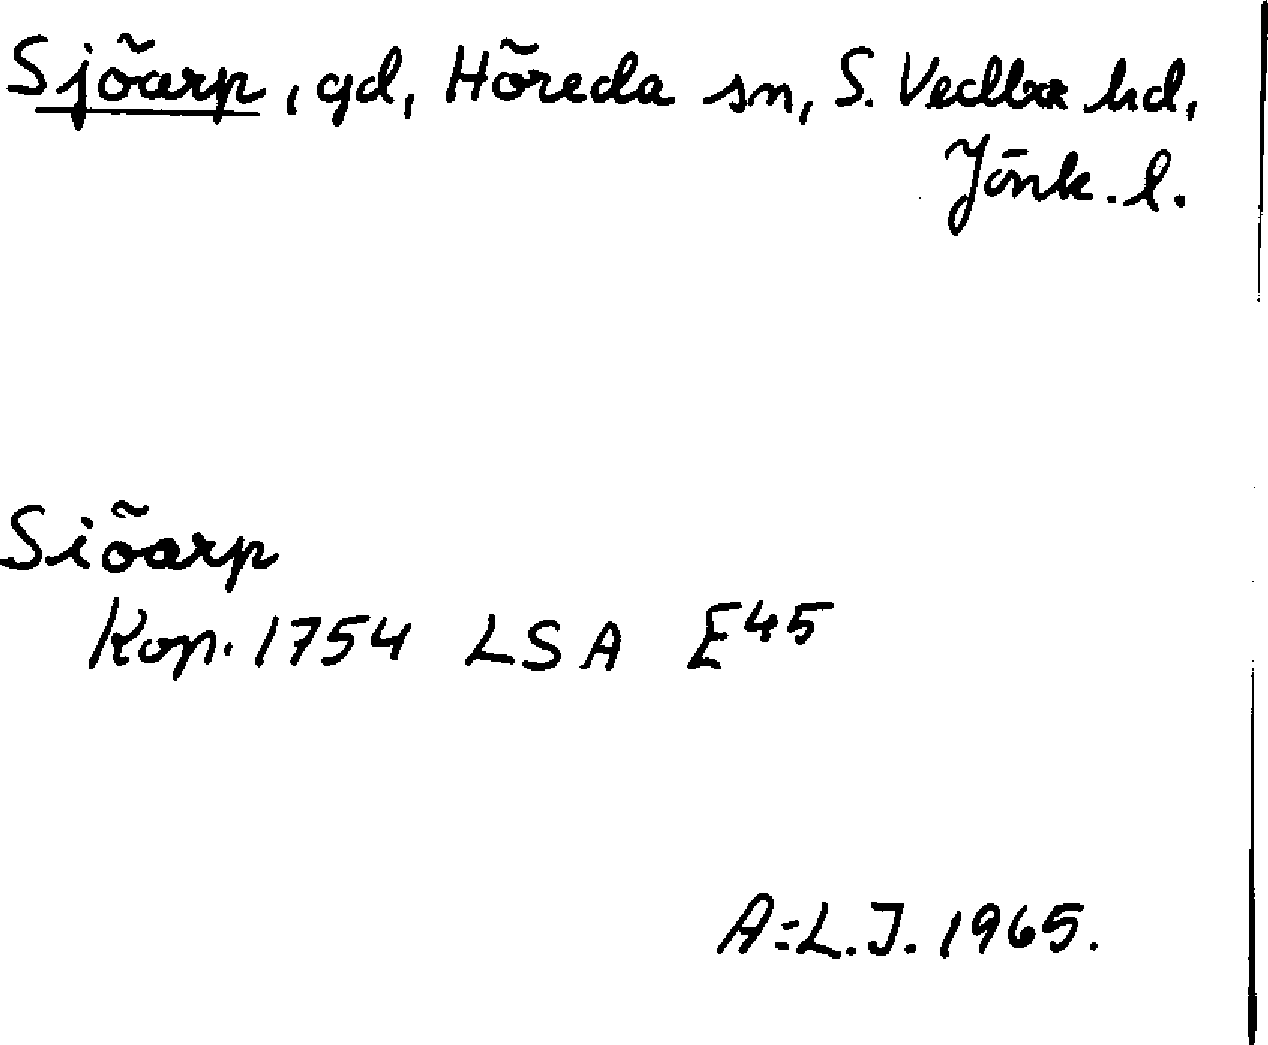 Sjöarp, gd, Höreda sn, S. Vedbo hd,
Jönk. l.
Siöarp
Kop. 1754 LSA E45
A-L.J. 1965.